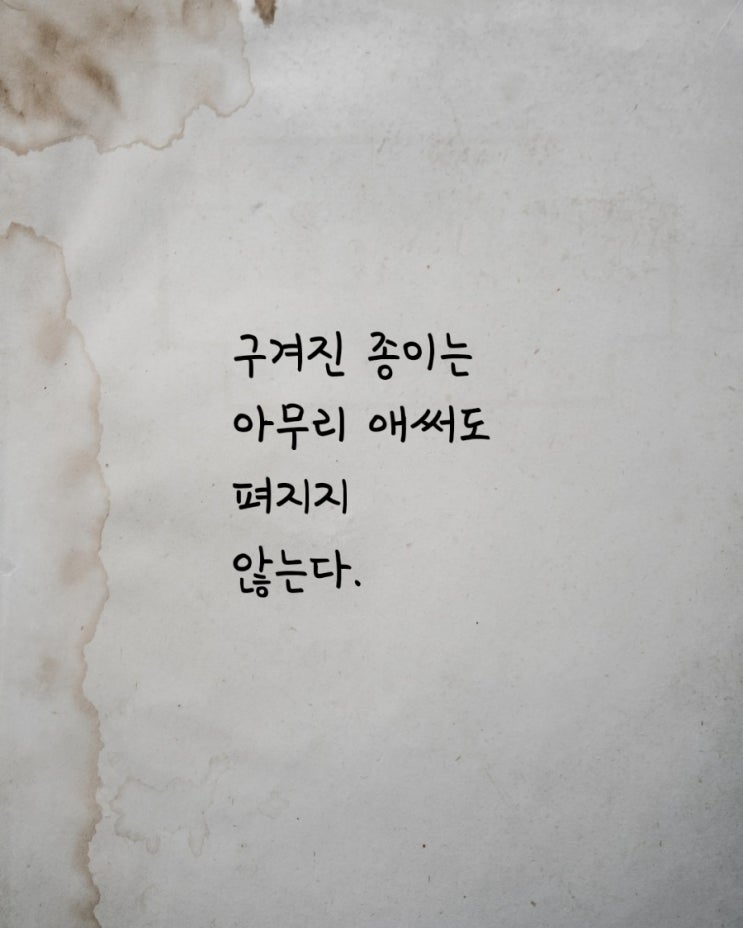 구겨진 종이는
아무리 애써도
펴지지
않는다.